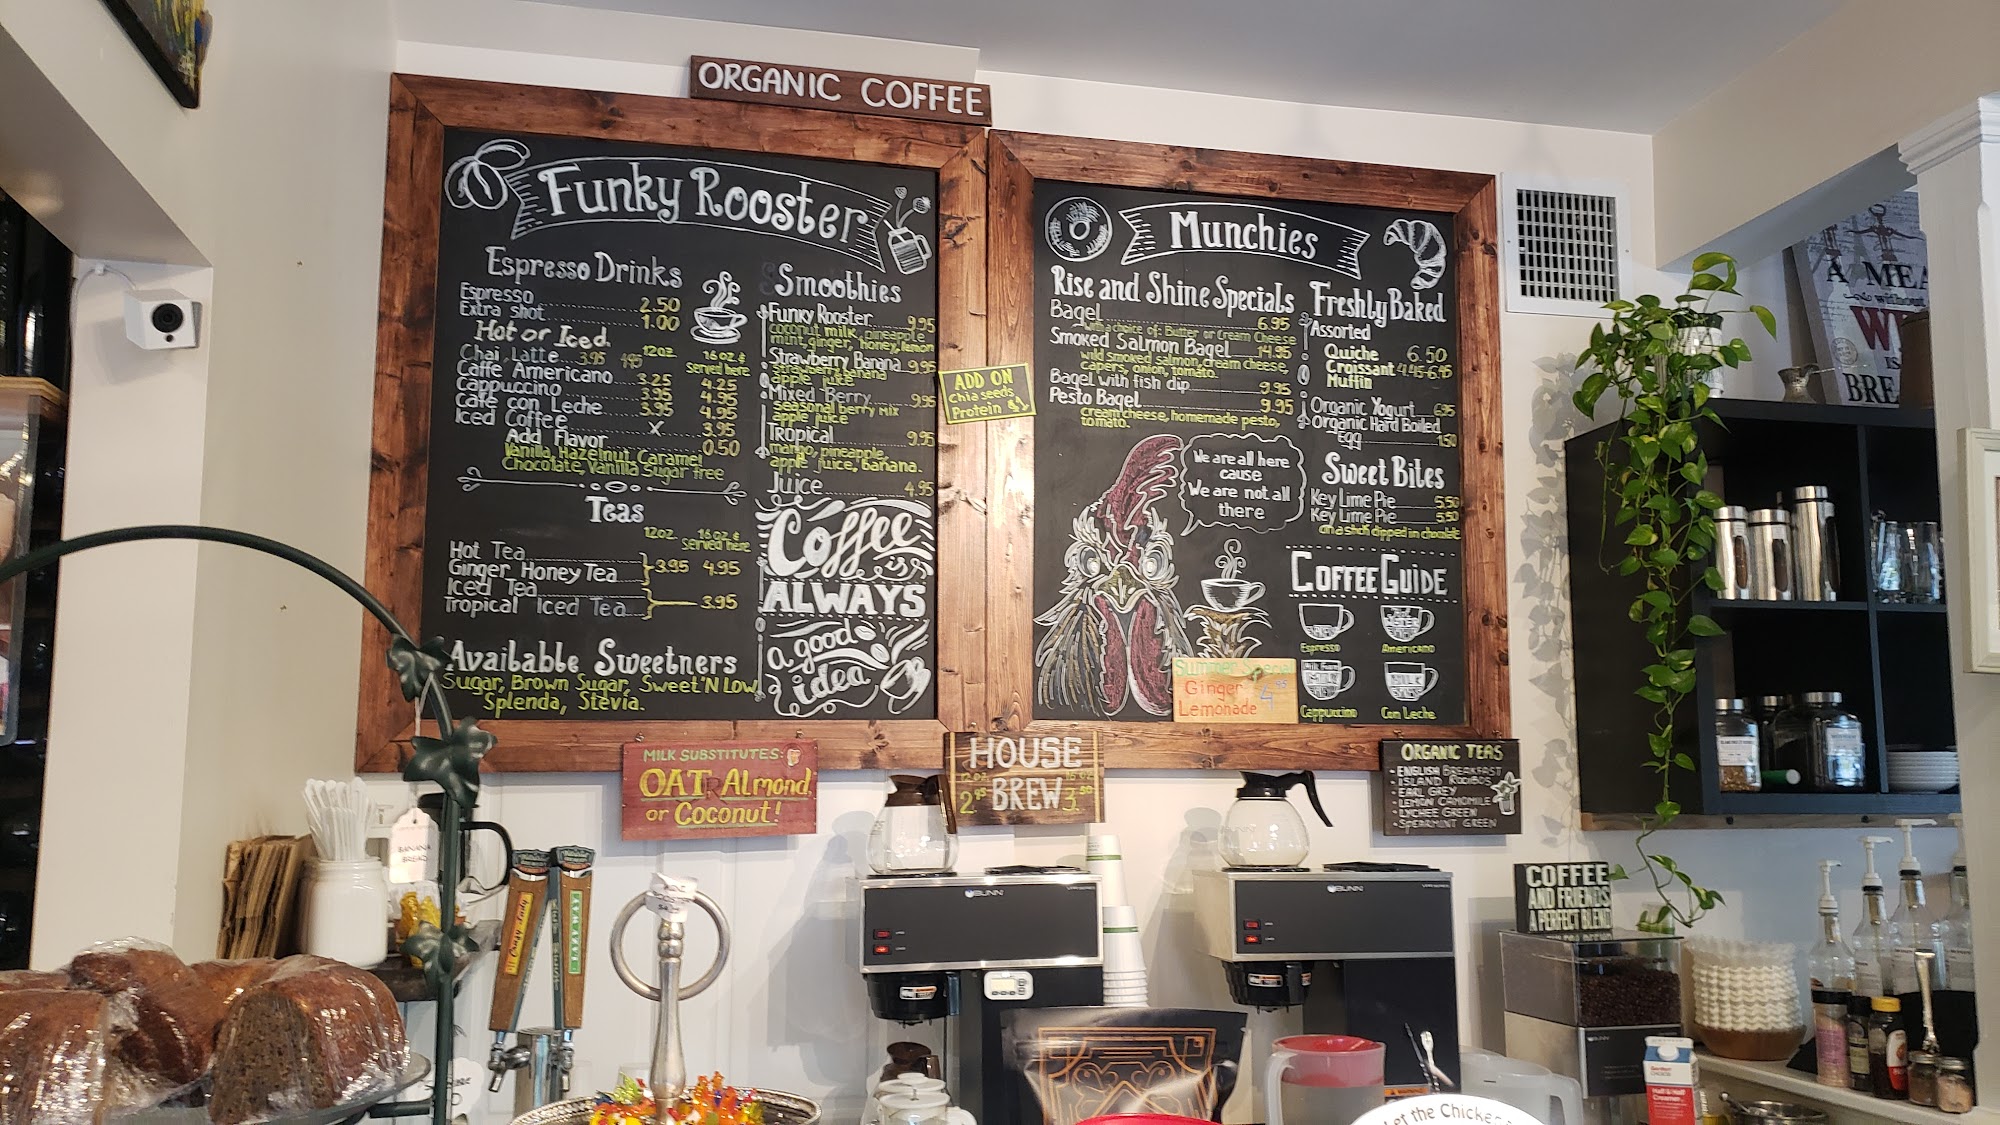 ORGANIC COFFEE
Funky Rooster
Espresso Drinks
Espresso 2.50
Extra shot 1.00
Hot or Iced
12oz 16oz &
Served here
Chai Latte 3.95 4.95
Caffe Americano 3.25 4.25
Cappuccino 3.95 4.95
Café con Leche 3.95 4.95
Iced Coffee X 3.95
Add Flavor 0.50
Vanilla, Hazelnut, Caramel
Chocolate, Vanilla Sugar free
Teas
12oz 16oz &
Served here
Hot Tea
Ginger Honey Tea 3.95 4.95
Iced Tea
Tropical Iced Tea 3.95
Available Sweetners
Sugar, Brown Sugar, Sweet'N Low,
Splenda, Stevia.
Smoothies
Funky Rooster 9.95
coconut milk, pineapple
mint, ginger, honey, lemon
Strawberry Banana 9.95
strawberry banana
apple juice
Mixed Berry 9.95
seasonal berry mix
apple juice
Tropical 9.95
mango, pineapple,
apple juice, banana.
Juice 4.95
Coffee
is
ALWAYS
a good
idea
ADD ON
Chia seeds
Protein $1
Munchies
Rise and Shine Specials
Bagel 6.95
with a choice of: Butter or Cream Cheese
Smoked Salmon Bagel 14.95
wild smoked salmon, cream cheese,
capers, onion, tomato.
Bagel with fish dip 9.95
Pesto Bagel 9.95
cream cheese, homemade pesto,
tomato.
We are all here
cause
We are not all
there
Freshly Baked
Assorted
Quiche 6.50
Croissant 4.45-6.45
Muffin
Organic Yogurt 6.95
Organic Hard Boiled
Egg 1.50
Sweet Bites
Key Lime Pie 5.50
Key Lime Pie 5.50
on a stick dipped in chocolate
COFFEE GUIDE
Espresso
Americano
Cappuccino
Con Leche
Summer Special
Ginger
Lemonade 4.95
MILK SUBSTITUTES:
OAT, Almond,
or Coconut!
HOUSE
BREW
12oz 16oz
2.95 3.50
ORGANIC TEAS
- ENGLISH BREAKFAST
- ISLAND ROOIBOS
- EARL GREY
- LEMON CAMOMILE
- LYCHEE GREEN
- SPEARMINT GREEN
A MEA
without
W
IS
BRE
COFFEE
AND FRIENDS
A PERFECT BLEND
BANANA
BREAD
BUNN
BUNN
BUNN
Half & Half
Creamer
et the Chicke